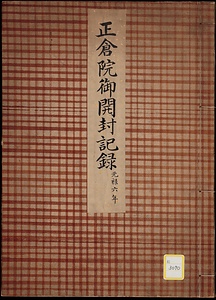 正倉院御開封記録
元禄六年